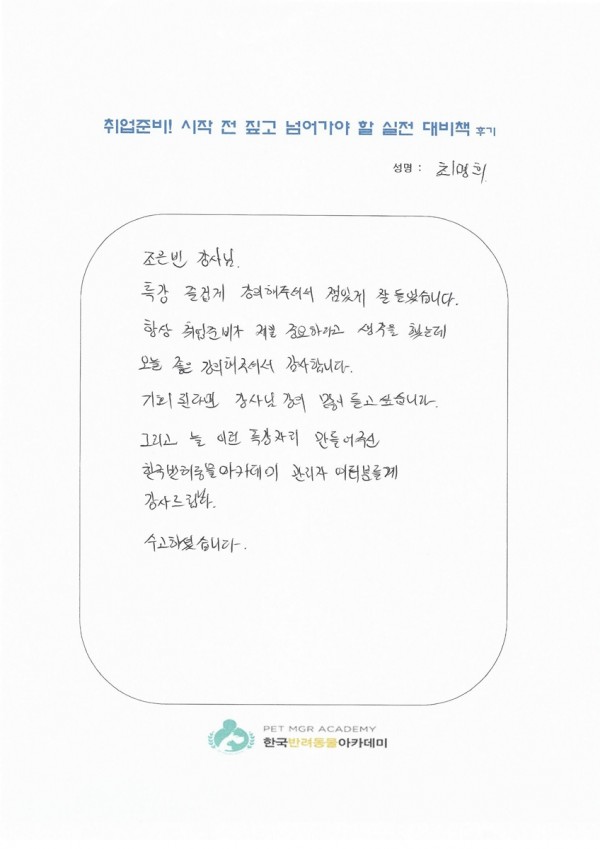 취업준비! 시작 전 짚고 넘어가야 할 실전 대비책 후기
성명 : 최명희
조은빈 강사님.
특강 즐겁게 강의해주셔서 재밌게 잘 들었습니다.
항상 취업준비가 제일 중요하다고 생각을 했는데
오늘 좋은 강의해주셔서 감사합니다.
기회 된다면 강사님 강의 많이 듣고 싶습니다.
그리고 늘 이런 특강자리 만들어주신
한국반려동물아카데미 관리자 여러분들께
감사드립니다.
수고하셨습니다.
PET MGR ACADEMY
한국반려동물아카데미